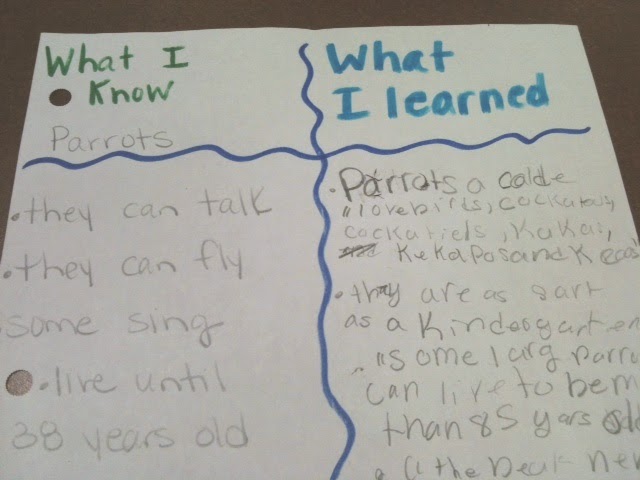 What I
Know
Parrots
• they can talk
• they can fly
some sing
• live until
38 years old
What
I learned
• Parrots a calde
"lovebirds, cockatous,
cockatiels, Kakas,
Kekapos and Keaos
• they are as sart
as a Kindeogarten
"some larg parro
can live to be m
than 85 yars old
• "the beak nev